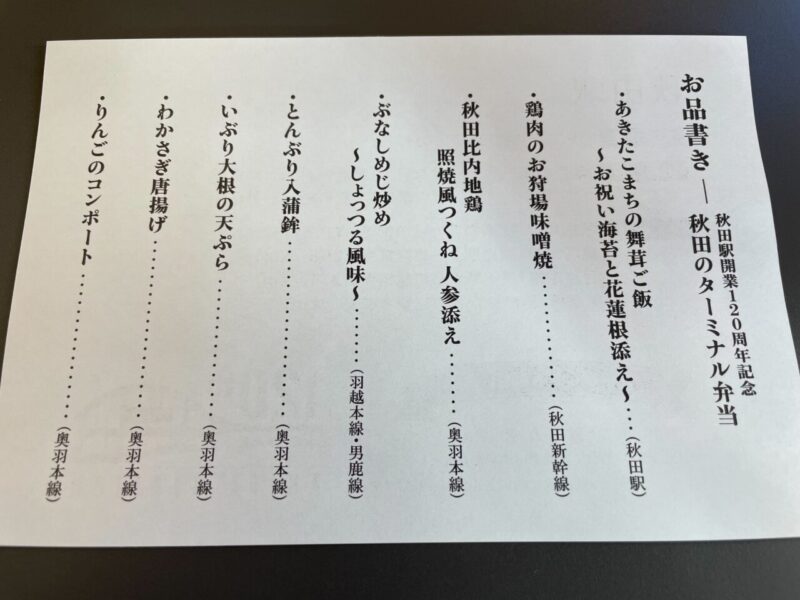 お品書き ― 秋田のターミナル弁当
秋田駅開業120周年記念
・あきたこまちの舞茸ご飯
～お祝い海苔と花蓮根添え～…(秋田駅)
・鶏肉のお狩場味噌焼………………(秋田新幹線)
・秋田比内地鶏
照焼風つくね 人参添え………(奥羽本線)
・ぶなしめじ炒め
～しょっつる風味～………(羽越本線・男鹿線)
・とんぶり入蒲鉾………………………(奥羽本線)
・いぶり大根の天ぷら…………………(奥羽本線)
・わかさぎ唐揚げ………………………(奥羽本線)
・りんごのコンポート…………………(奥羽本線)